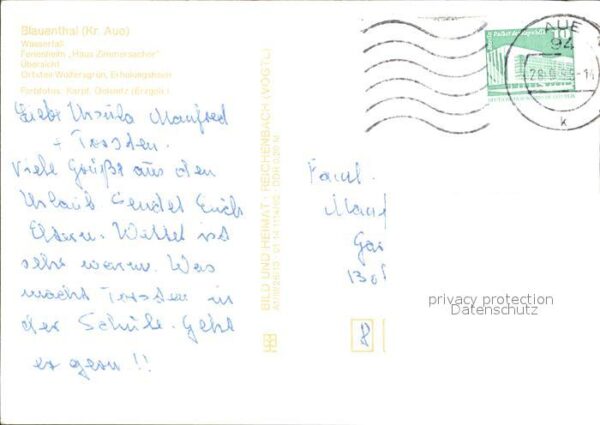 Blauenthal (Kr. Aue)
Wasserfall
Ferienheim „Haus Zimmersacher"
Übersicht
Ortsteil Wolfersgrün, Erholungsheim
Farbfotos: Karpf, Oelsnitz (Erzgeb.)
Liebe Ursula Manfred
+ Torsden.
Viele Grüße aus den
Urlaub sendet Euch
Eltern. Wettel ist
sehr warm. Was
macht Torsden in
der Schule. Geht
er gern!!
BILD UND HEIMAT · REICHENBACH (VOGTL)
DDR 0,20 M
Faml.
Manf
Gar
1305
8
AUE
94
k
10
privacy protection
Datenschutz